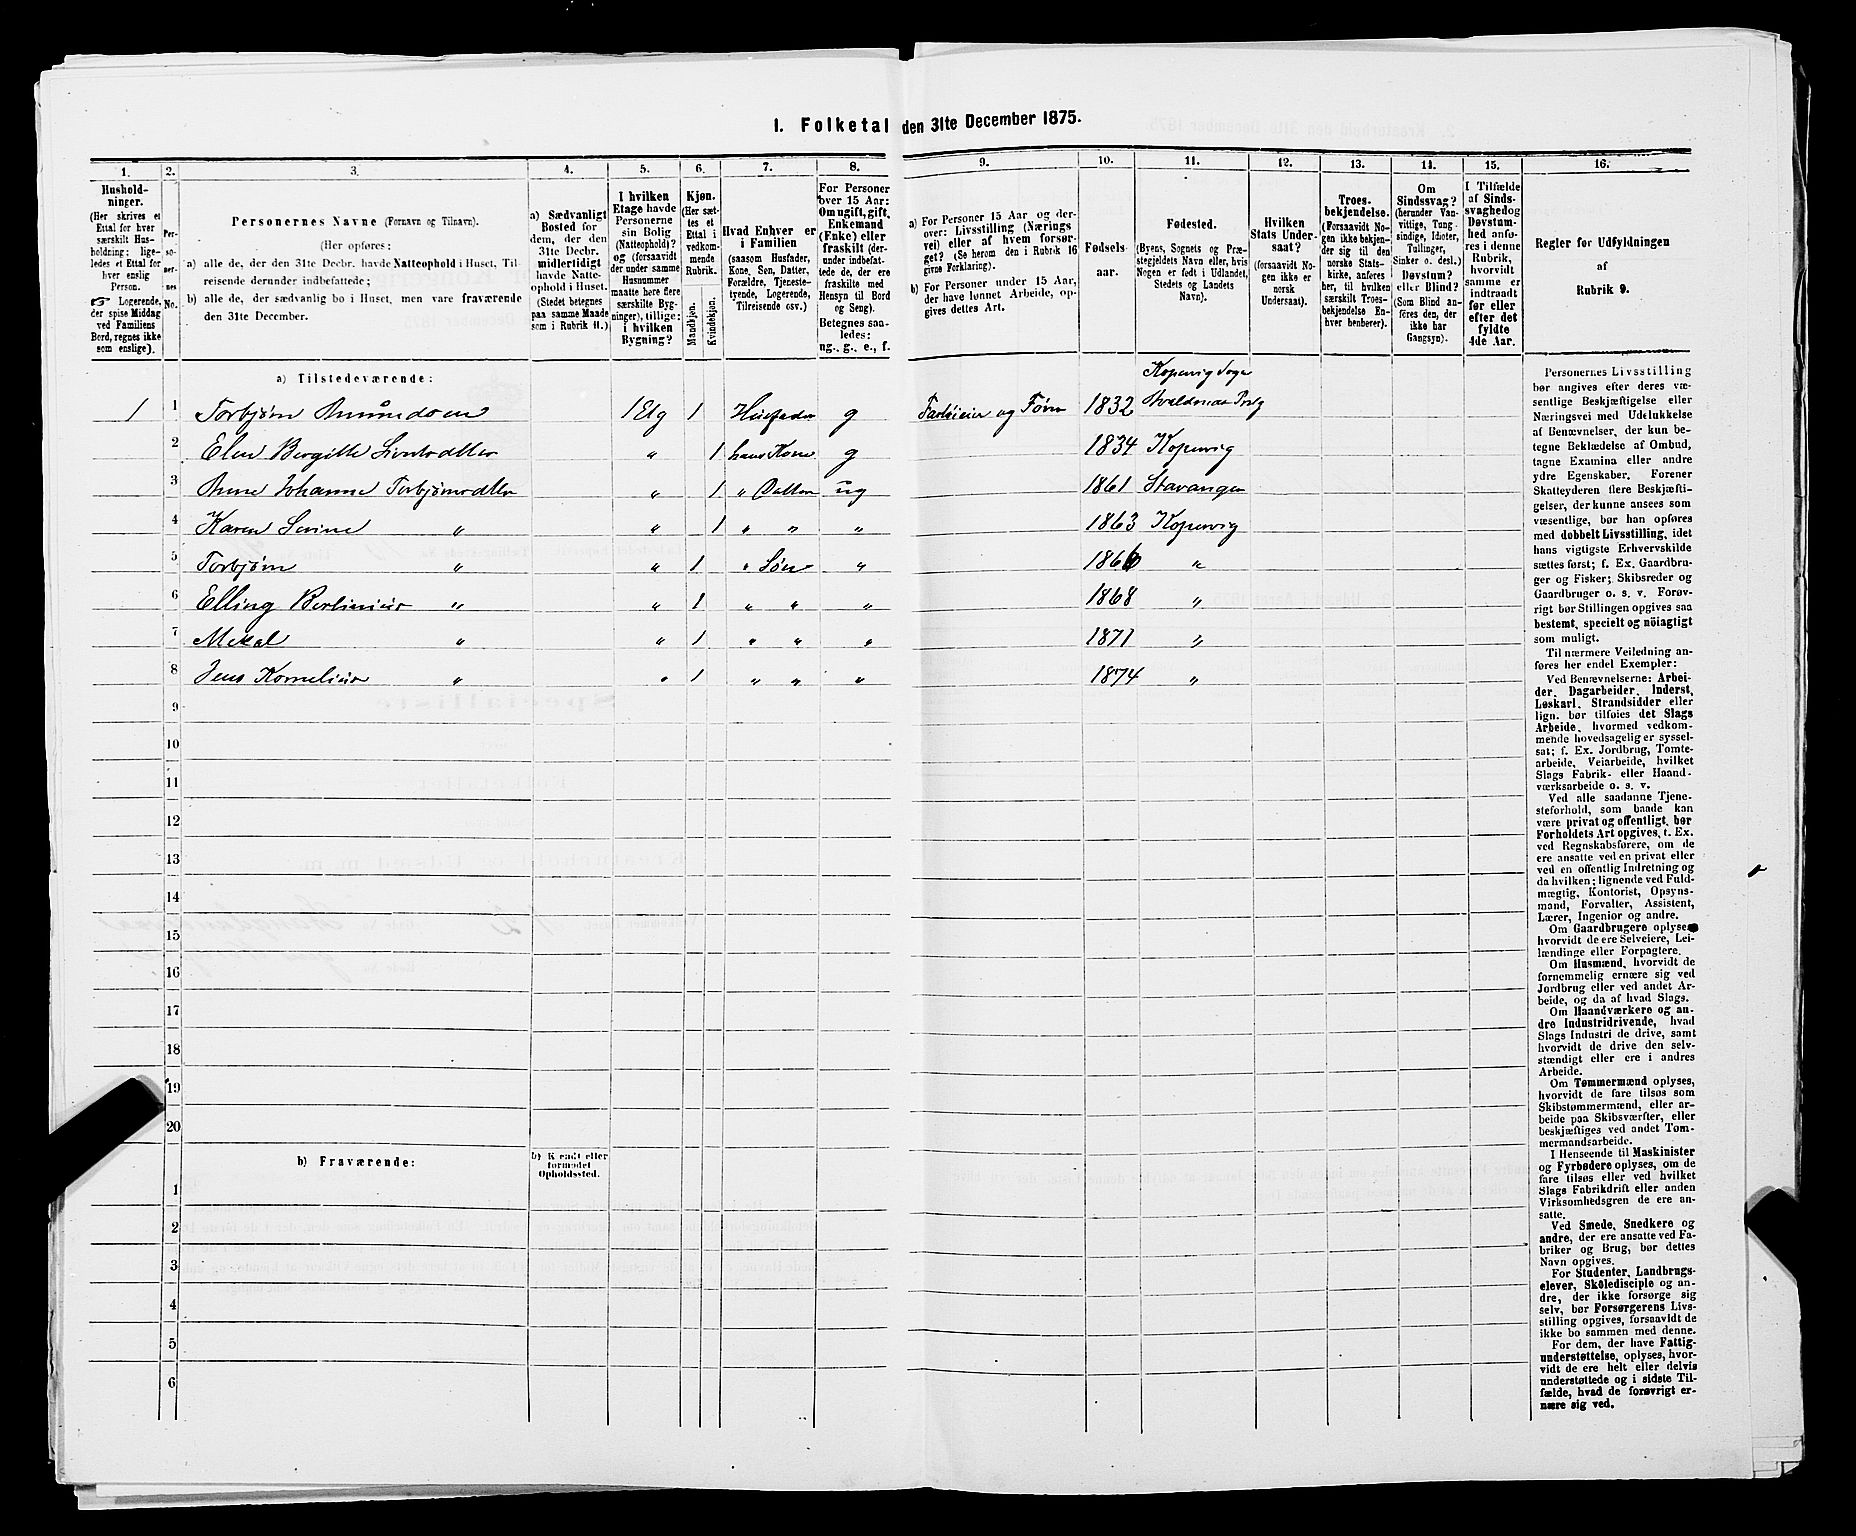 1. Folketal den 31te December 1875.
1. 2. 3. 4. 5. 6. 7. 8. 9. 10. 11. 12. 13. 14. 15. 16.
Hushold-
ninger.
(Her skrives et
Ettal for hver
særskilt Hus-
holdning; lige-
ledes et Ettal for
hver enslig
Person.
☞ Logerende,
der spise Middag
ved Familiens
Bord, regnes ikke
som enslige).
Per-
so-
ner-
nes
No.
Personernes Navne (Fornavn og Tilnavn).
(Her opføres:
a) alle de, der den 31te Decbr. havde Natteophold i Huset, Til-
reisende derunder indbefattede;
b) alle de, der sædvanlig bo i Huset, men vare fraværende
den 31te December.
a) Sædvanligt
Bosted for
dem, der den
31te Decbr.
midlertidigt
havde Natte-
ophold i Huset.
(Stedet betegnes
paa samme Maade
som i Rubrik 11.)
I hvilken
Etage havde
Personerne
sin Bolig
(Natteophold)?
og (forsaavidt
der under samme
Husnummer
maatte høre flere
særskilte Byg-
ninger), tillige:
i hvilken
Bygning?
Kjøn.
(Her sæt-
tes et
Ettal i
vedkom-
mende
Rubrik.
Mandkjøn.
Kvindekjøn.
Hvad Enhver er
i Familien
(saasom Husfader,
Kone, Søn, Datter,
Forældre, Tjeneste-
tyende, Logerende,
Tilreisende osv.)
For Personer
over 15 Aar:
Om ugift, gift,
Enkemand
(Enke) eller
fraskilt (der-
under indbefat-
tede de, der ere
fraskilte med
Hensyn til Bord
og Seng).
Betegnes saa-
ledes:
ug., g., e., f.
a) For Personer 15 Aar og der-
over: Livsstilling (Nærings
vei) eller af hvem forsør-
get? (Se herom den i Rubrik 16
givne Forklaring).
b) For Personer under 15 Aar,
der have lønnet Arbeide, op-
gives dettes Art.
Fødsels-
aar.
Fødested.
(Byens, Sognets og Præ-
stegjeldets Navn eller, hvis
Nogen er født i Udlandet,
Stedets og Landets
Navn).
Hvilken
Stats Under-
saat?
(forsaavidt No-
gen ikke er
norsk
Undersaat).
Troes-
bekjendelse.
(Forsaavidt No-
gen ikke bekjen-
der sig til den
norske Stats-
kirke, anføres
her, til hvilken
særskilt Troes-
bekjendelse En-
hver benhører).
Om
Sindssvag?
(herunder Van-
vittige, Tung-
sindige, Idioter,
Tullinger,
Sinker o. desl.)
Døvstum?
eller Blind?
(Som Blind an-
føres den, der
ikke har
Gangsyn).
I Tilfælde
af Sinds-
svaghed og
Døvstum-
hed anfø-
res i denne
Rubrik,
hvorvidt
samme er
indtraadt
før eller
efter det
fyldte
4de Aar.
Regler for Udfyldningen
af
Rubrik 9.
a) Tilstedeværende:
Kopervig Sogn
1 1 Torbjørn Amundsen 1 Etg 1 Husfader g og 1832
2 Elen Bergitte „ 1 hans Kone g 1834 Kopervig
3 Anne Johanne Torbjørnsdtter „ 1 „ Datter ug 1861 Stavanger
4 Karen Serine „ „ 1 „ „ „ 1863 Kopervig
5 Torbjørn „ „ 1 „ Søn „ 1866 „
6 Elling „ „ 1 „ „ „ 1868 „
7 Mekal „ „ 1 „ „ „ 1871 „
8 Jens Kornelius „ „ 1 „ „ „ 1874 „
9
10
11
12
13
14
15
16
17
18
19
20
b) Fraværende:
b) Kjendt eller
formodet
Opholdssted.
1
2
3
4
5
6
Personernes Livsstilling
bør angives efter deres væ-
sentlige Beskjæftigelse eller
Næringsvei med Udelukkelse
af Benævnelser, der kun be-
tegne Beklædelse af Ombud,
tagne Examina eller andre
ydre Egenskaber. Forener
Skatteyderen flere Beskjæfti-
gelser, der kunne ansees som
væsentlige, bør han opføres
med dobbelt Livsstilling, idet
hans vigtigste Erhvervskilde
sættes først; f. Ex. Gaardbru-
ger og Fisker; Skibsreder og
Gaardbruger o. s. v. Forøv-
rigt bør Stillingen opgives saa
bestemt, specielt og nöiagtigt
som muligt.
Til nærmere Veiledning an-
føres her endel Exempler:
Ved Benævnelserne: Arbei-
der, Dagarbeider, Inderst,
Løskarl, Strandsidder eller
lign. bør tilføies det Slags
Arbeide, hvormed vedkom-
mende hovedsagelig er syssel-
sat; f. Ex. Jordbrug, Tomte-
arbeide, Veiarbeide, hvilket
Slags Fabrik- eller Haand-
værksarbeide o. s. v.
Ved alle saadanne Tjene-
steforhold, som baade kan
være privat og offentligt, bør
Forholdets Art opgives, t. Ex.
ved Regnskabsførere, om de
ere ansatte ved en privat eller
ved en offentlig Indretning og
da hvilken; lignende ved Fuld-
mægtig, Kontorist, Opsyns-
mand, Forvalter, Assistent,
Lærer, Ingeniør og andre.
Om Gaardbrugere oplyses
hvorvidt de ere Selveiere, Lei-
lændinge eller Forpagtere.
Om Husmænd, hvorvidt de
fornemmelig ernære sig ved
Jordbrug eller ved andet Ar-
beide, og da af hvad Slags.
Om Haandværkere og an-
dre Industridrivende, hvad
Slags Industri de drive, samt
hvorvidt de drive den selv-
stændigt eller ere i andres
Arbeide.
Om Tømmermænd oplyses,
hvorvidt de fare tilsøs som
Skibstømmermænd, eller ar-
beide paa Skibsværfter, eller
beskjæftiges ved andet Tøm-
mermandsarbeide.
I Henseende til Maskinister
og Fyrbødere oplyses, om de
fare tilsøs eller ved hvilket
Slags Fabrikdrift eller anden
Virksomhedsgren de ere an-
satte.
Ved Smede, Snedkere og
andre, der ere ansatte ved Fa-
briker og Brug, bør dettes
Navn opgives.
For Studenter, Landbrugs-
elever, Skoledisciple og an-
dre, der ikke forsørge sig
selv, bør Forsørgerens Livs-
stilling opgives, forsaavidt de
ikke bo sammen med denne.
For dem, der have Fattig-
understøttelse, oplyses, hvor-
vidt de ere helt eller delvis
understøttede og i sidste Til-
fælde, hvad de forøvrigt er-
nære sig ved.